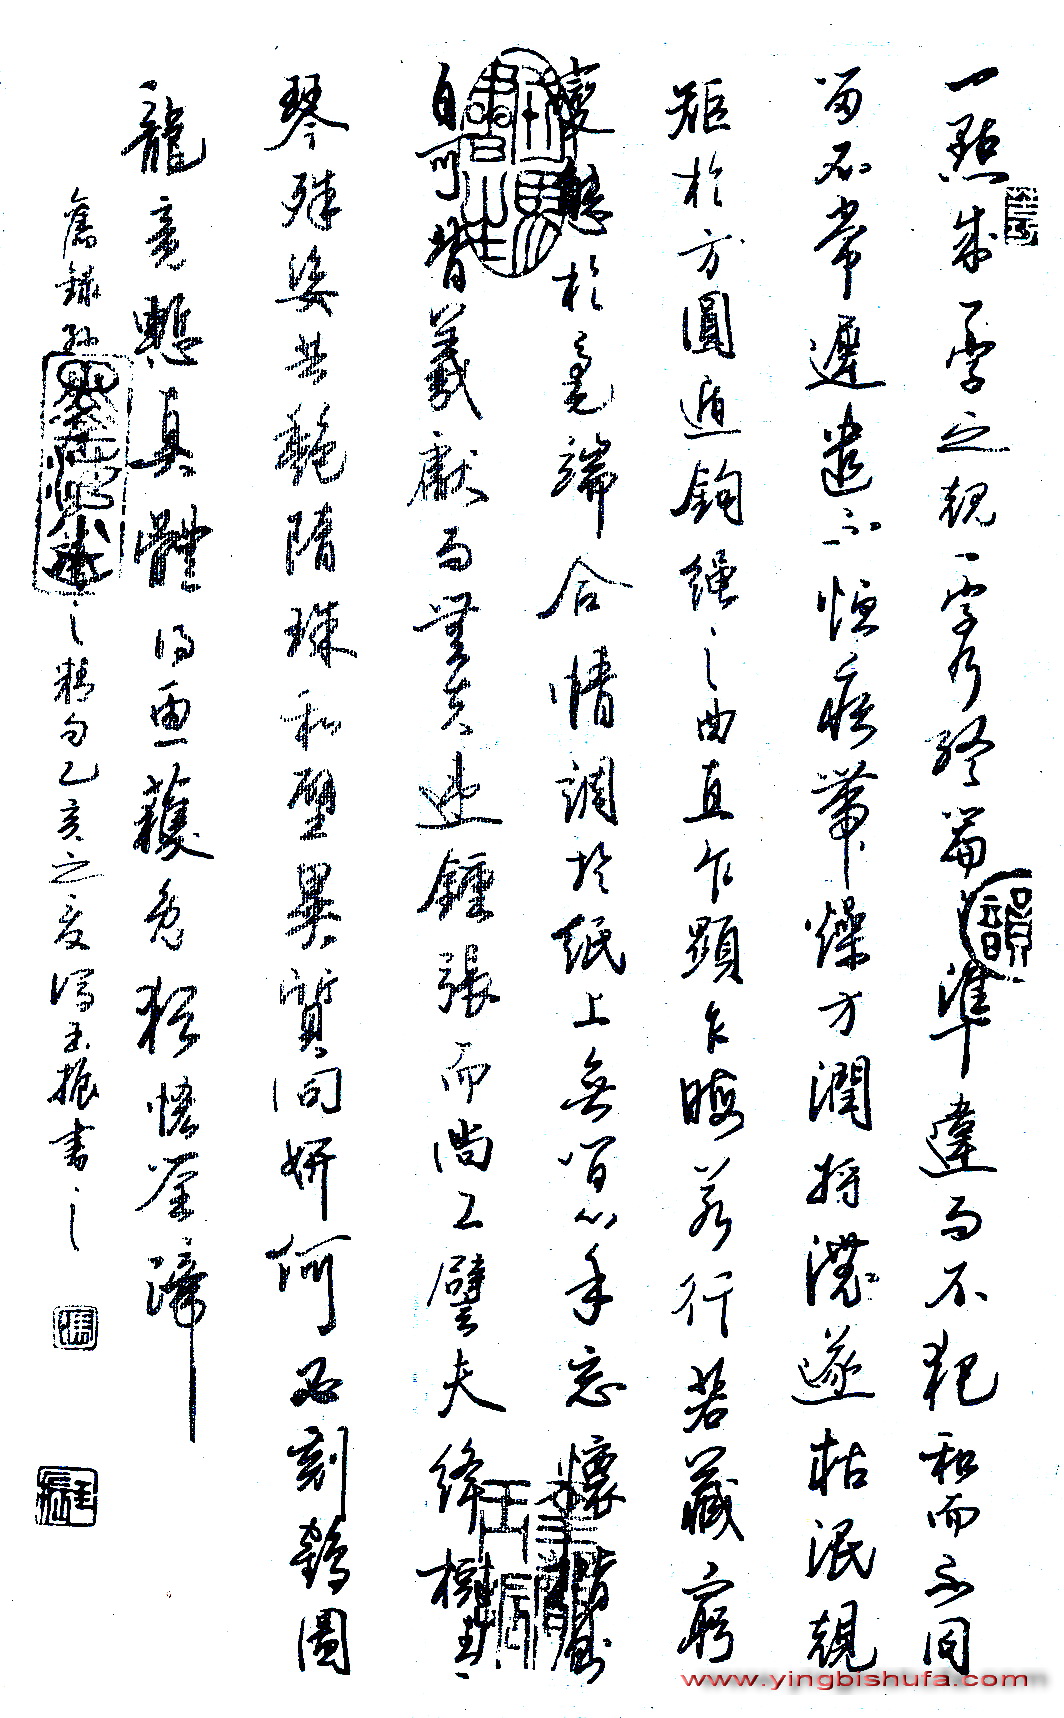 一點成一字之規一字乃終篇之準違而不犯和而不同
留不常遲遣不恒疾帶燥方潤將濃遂枯泯規
矩於方圓遁鉤繩之曲直乍顯乍晦若行若藏窮
變態於毫端合情調於紙上無間心手忘懷楷則
自可背羲獻而無失違鍾張而尚工譬夫絳樹青
琴殊姿共艷隋珠和璧異質同妍何必刻鶴圖
龍竟慚真體得魚獲兔猶恡筌蹄
舊錄孫之精句乙亥之夏馮玉振書之
www.yingbishufa.com